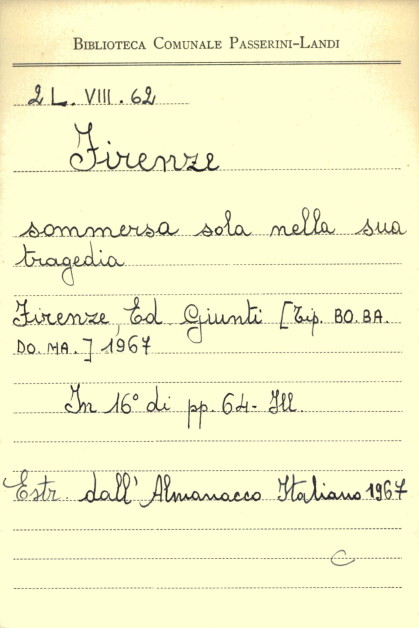 BIBLIOTECA COMUNALE PASSERINI-LANDI
2 L. VIII. 62
Firenze
sommersa sola nella sua
tragedia
Firenze, Ed. Giunti [Tip. BO.BA.
DO.MA.] 1967
In 16° di pp. 64- Ill.
Estr. dall'Almanacco Italiano 1967
C